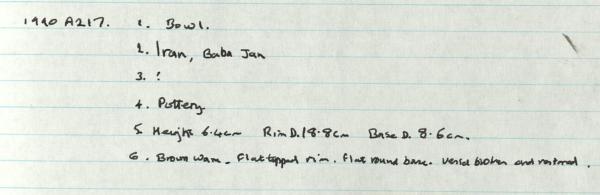 1990 A217. 1. Bowl.
2. Iran, Baba Jan
3. ?
4. Pottery
5. Height 6.4cm Rim D. 18.8cm Base D. 8.6cm.
6. Brown ware. Flat topped rim. Flat round base. Vessel broken and restored.